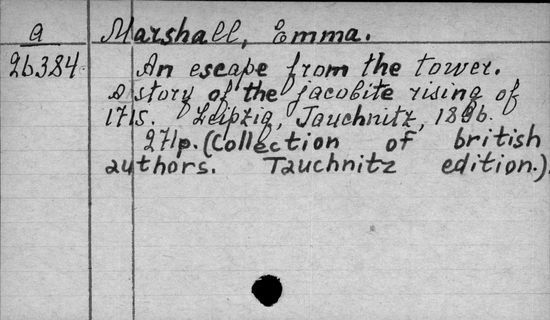 a Marshall, Emma.
26384. An escape from the tower.
A story of the jacobite rising of
1715. Leipzig, Tauchnitz, 1896.
271p. (Collection of british
authors. Tauchnitz edition.).